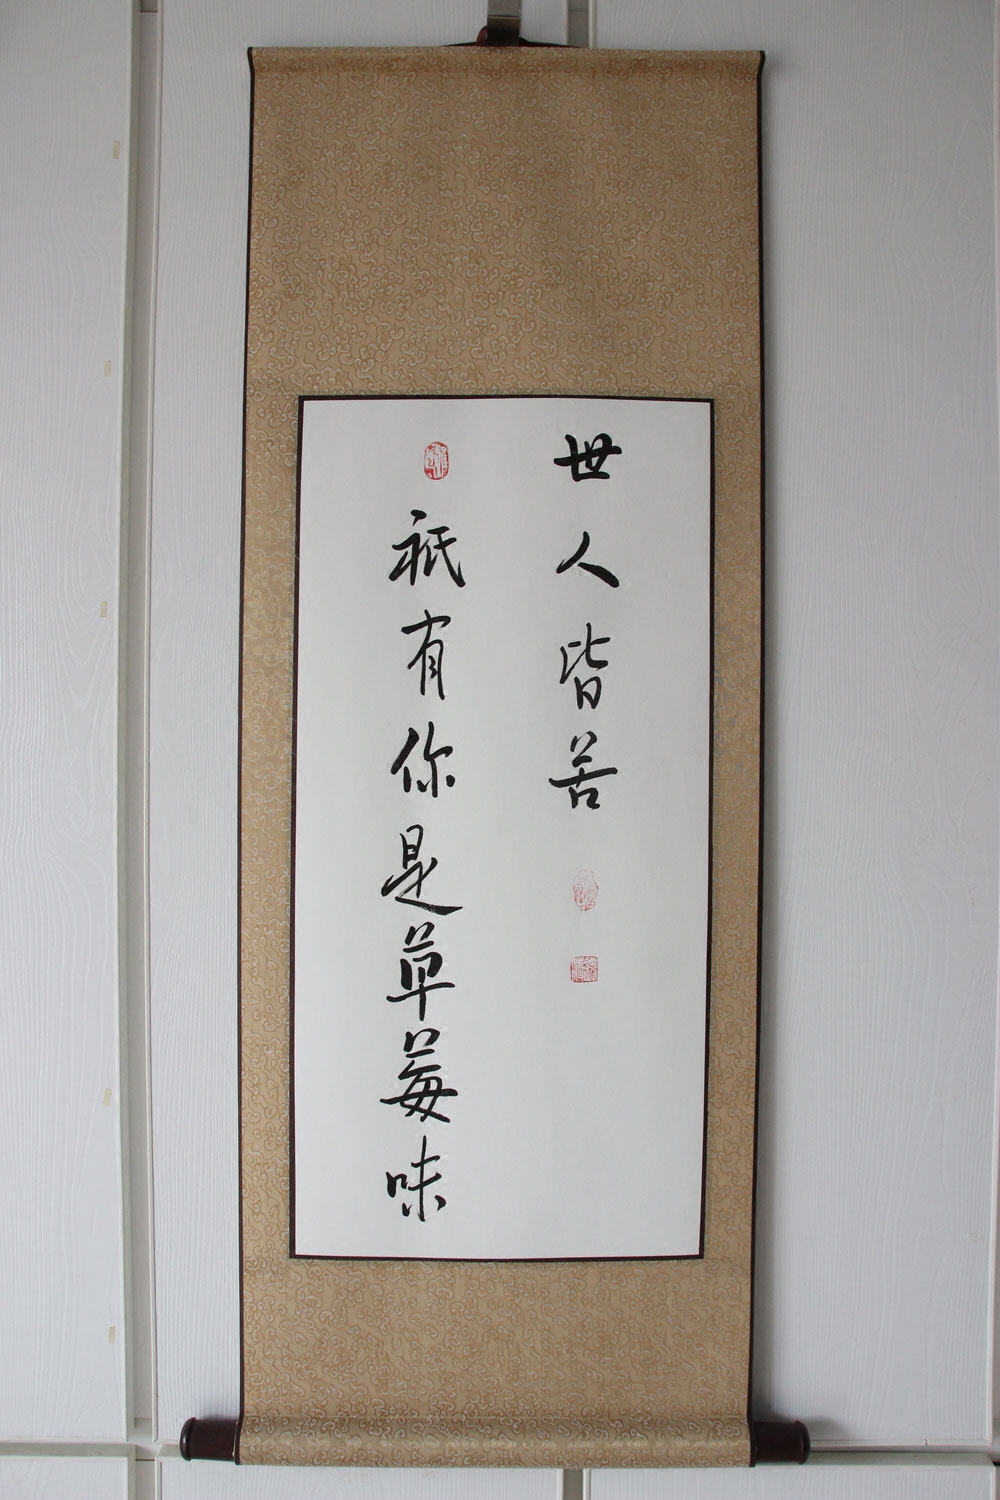 世人皆苦
祇有你是草莓味